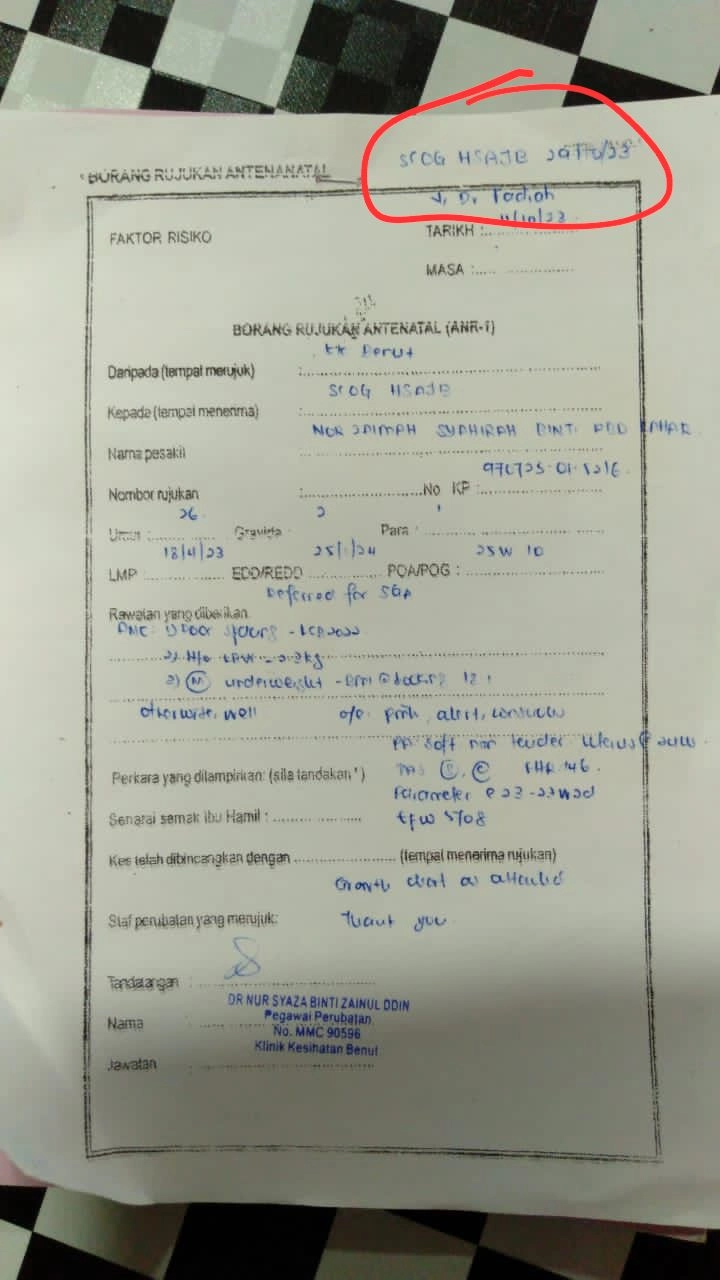 SCOG HSAJB
BORANG RUJUKAN ANTENANATAL
Dr
11/10/23
FAKTOR RISIKO
TARIKH :
MASA :
BORANG RUJUKAN ANTENATAL (ANR-1)
KK Benut
Daripada (tempat merujuk) :
SCOG HSAJB
Kepada (tempat menerima) :
NOR SYAHIRAH BINTI
Nama pesakit
Nombor rujukan : No KP :
26 2 1
Umur : Gravida : Para :
18/4/23 25/1/24 25W
LMP : EDD/REDD : POA/POG :
for SGA
Rawatan yang diberikan
1) Poor spacing - 2022
2) H/o - 2.3kg
3) (M) underweight - BMI @ booking 12.1
otherwise, well o/e: pink, alert, conscious
PA soft non tender uterus @
Perkara yang dilampirkan: (sila tandakan *)
TAS (S), (C) FHR 146.
Parameter @ 23-23w2d
Senarai semak ibu Hamil :
EFW 570g
Kes telah dibincangkan dengan (tempat menerima rujukan)
Growth chart as attached
Staf perubatan yang merujuk:
Thank you.
Tandatangan :
DR NUR SYAZA BINTI ZAINUL DDIN
Nama : Pegawai Perubatan
No. MMC 90596
Klinik Kesihatan Benut
Jawatan :